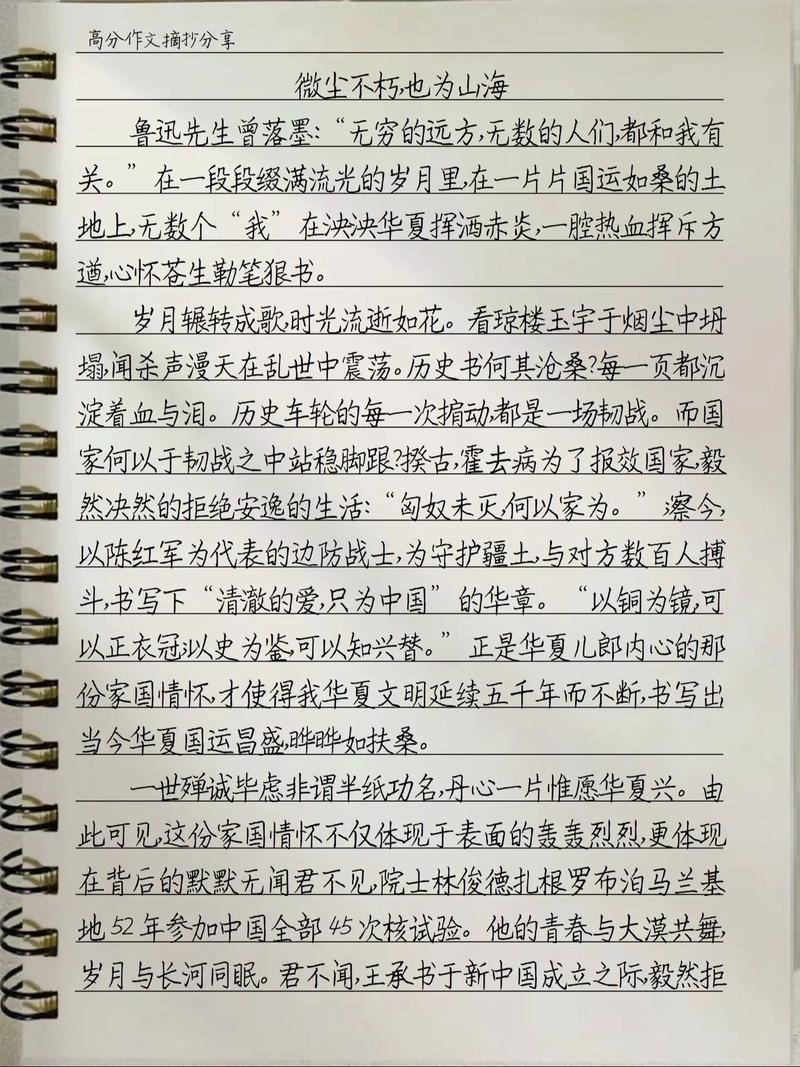 高分作文摘抄分享
微尘不朽,也为山海
鲁迅先生曾落墨:“无穷的远方,无数的人们,都和我有
关。”在一段段缀满流光的岁月里,在一片片国运如桑的土
地上,无数个“我”在泱泱华夏挥洒赤炎,一腔热血挥斥方
遒,心怀苍生勒笔狠书。
岁月辗转成歌,时光流逝如花。看琼楼玉宇于烟尘中坍
塌,闻杀声漫天在乱世中震荡。历史书何其沧桑?每一页都沉
淀着血与泪。历史车轮的每一次掮动,都是一场韧战。而国
家何以于韧战之中站稳脚跟?揆古,霍去病为了报效国家,毅
然决然的拒绝安逸的生活:“匈奴未灭,何以家为。”;察今,
以陈红军为代表的边防战士,为守护疆土,与对方数百人搏
斗,书写下“清澈的爱,只为中国”的华章。“以铜为镜,可
以正衣冠;以史为鉴,可以知兴替。”正是华夏儿郎内心的那
份家国情怀,才使得我华夏文明延续五千年而不断,书写出
当今华夏国运昌盛,晔晔如扶桑。
一世殚诚毕虑非谓半纸功名,丹心一片惟愿华夏兴。由
此可见,这份家国情怀不仅体现于表面的轰轰烈烈,更体现
在背后的默默无闻君不见,院士林俊德扎根罗布泊马兰基
地52年参加中国全部45次核试验。他的青春与大漠共舞,
岁月与长河同眠。君不闻,王承书于新中国成立之际,毅然拒